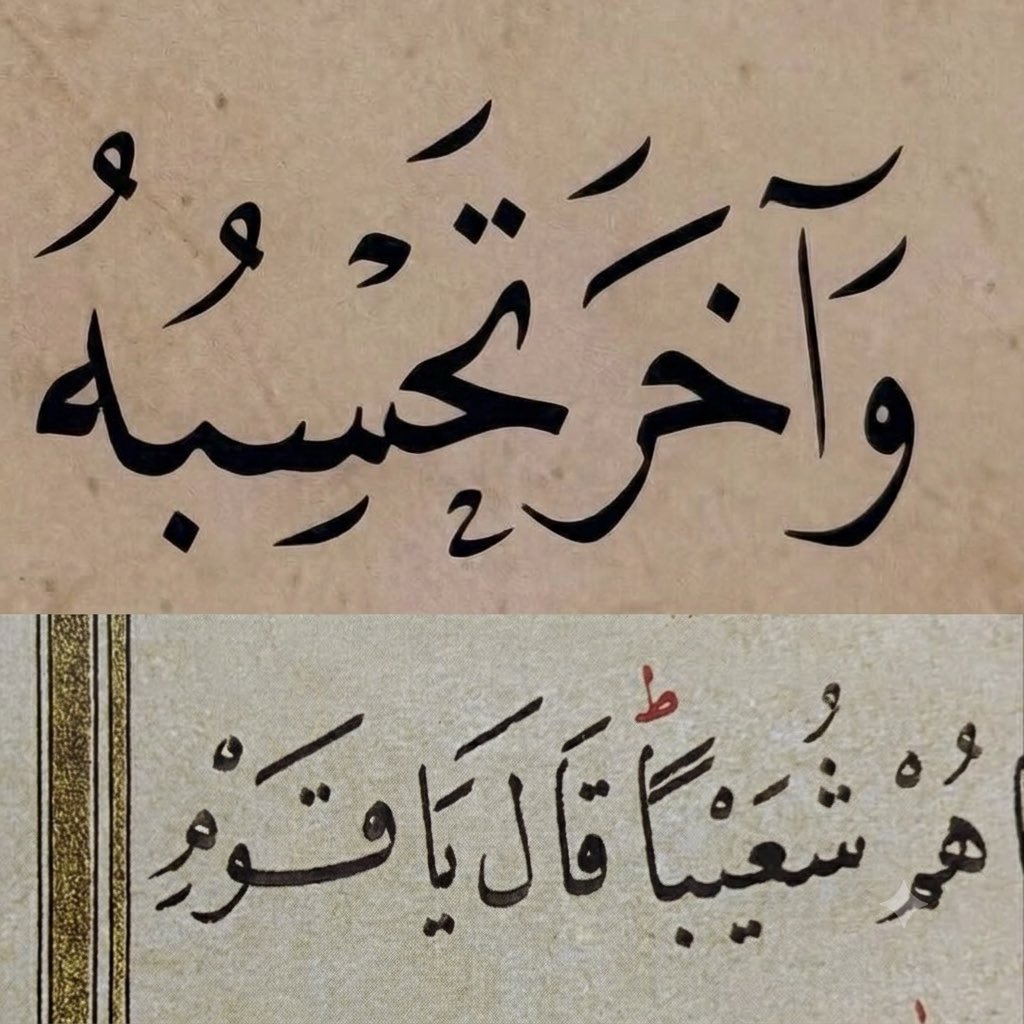 وَآخَرَ تَحْسِبُهُ
هُمْ شُعَيْباًؕ قَالَ يَا قَوْمِ